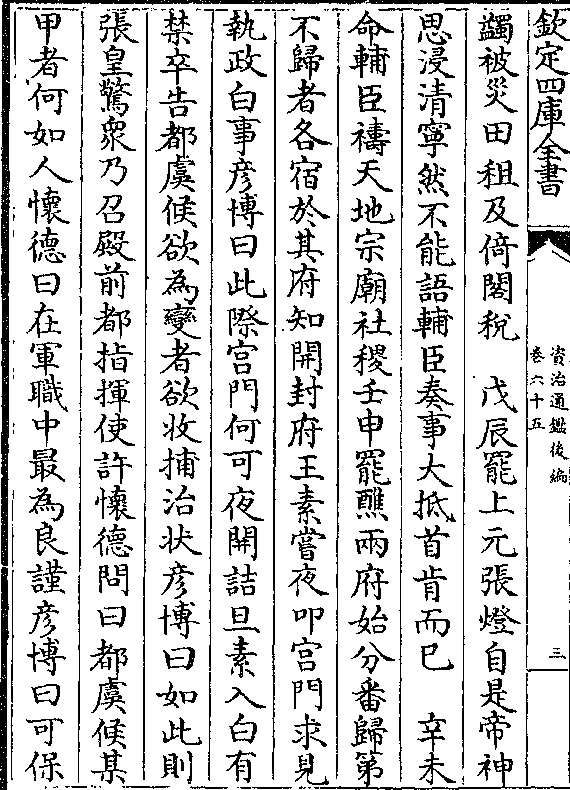 欽定四庫全書
資治通鑑後編
卷六十五
三
蠲被災田租及倚閣稅　戊辰罷上元張燈自是帝神
思浸清寧然不能語輔臣奏事大抵首肯而已　辛未
命輔臣禱天地宗廟社稷壬申罷醮兩府始分番歸第
不歸者各宿於其府知開封府王素嘗夜叩宮門求見
執政白事彥博曰此際宮門何可夜開詰旦素入白有
禁卒告都虞候欲為變者欲收捕治状彥博曰如此則
張皇驚衆乃召殿前都指揮使許懷德問曰都虞候某
甲者何如人懷德曰在軍職中最為良謹彥博曰可保